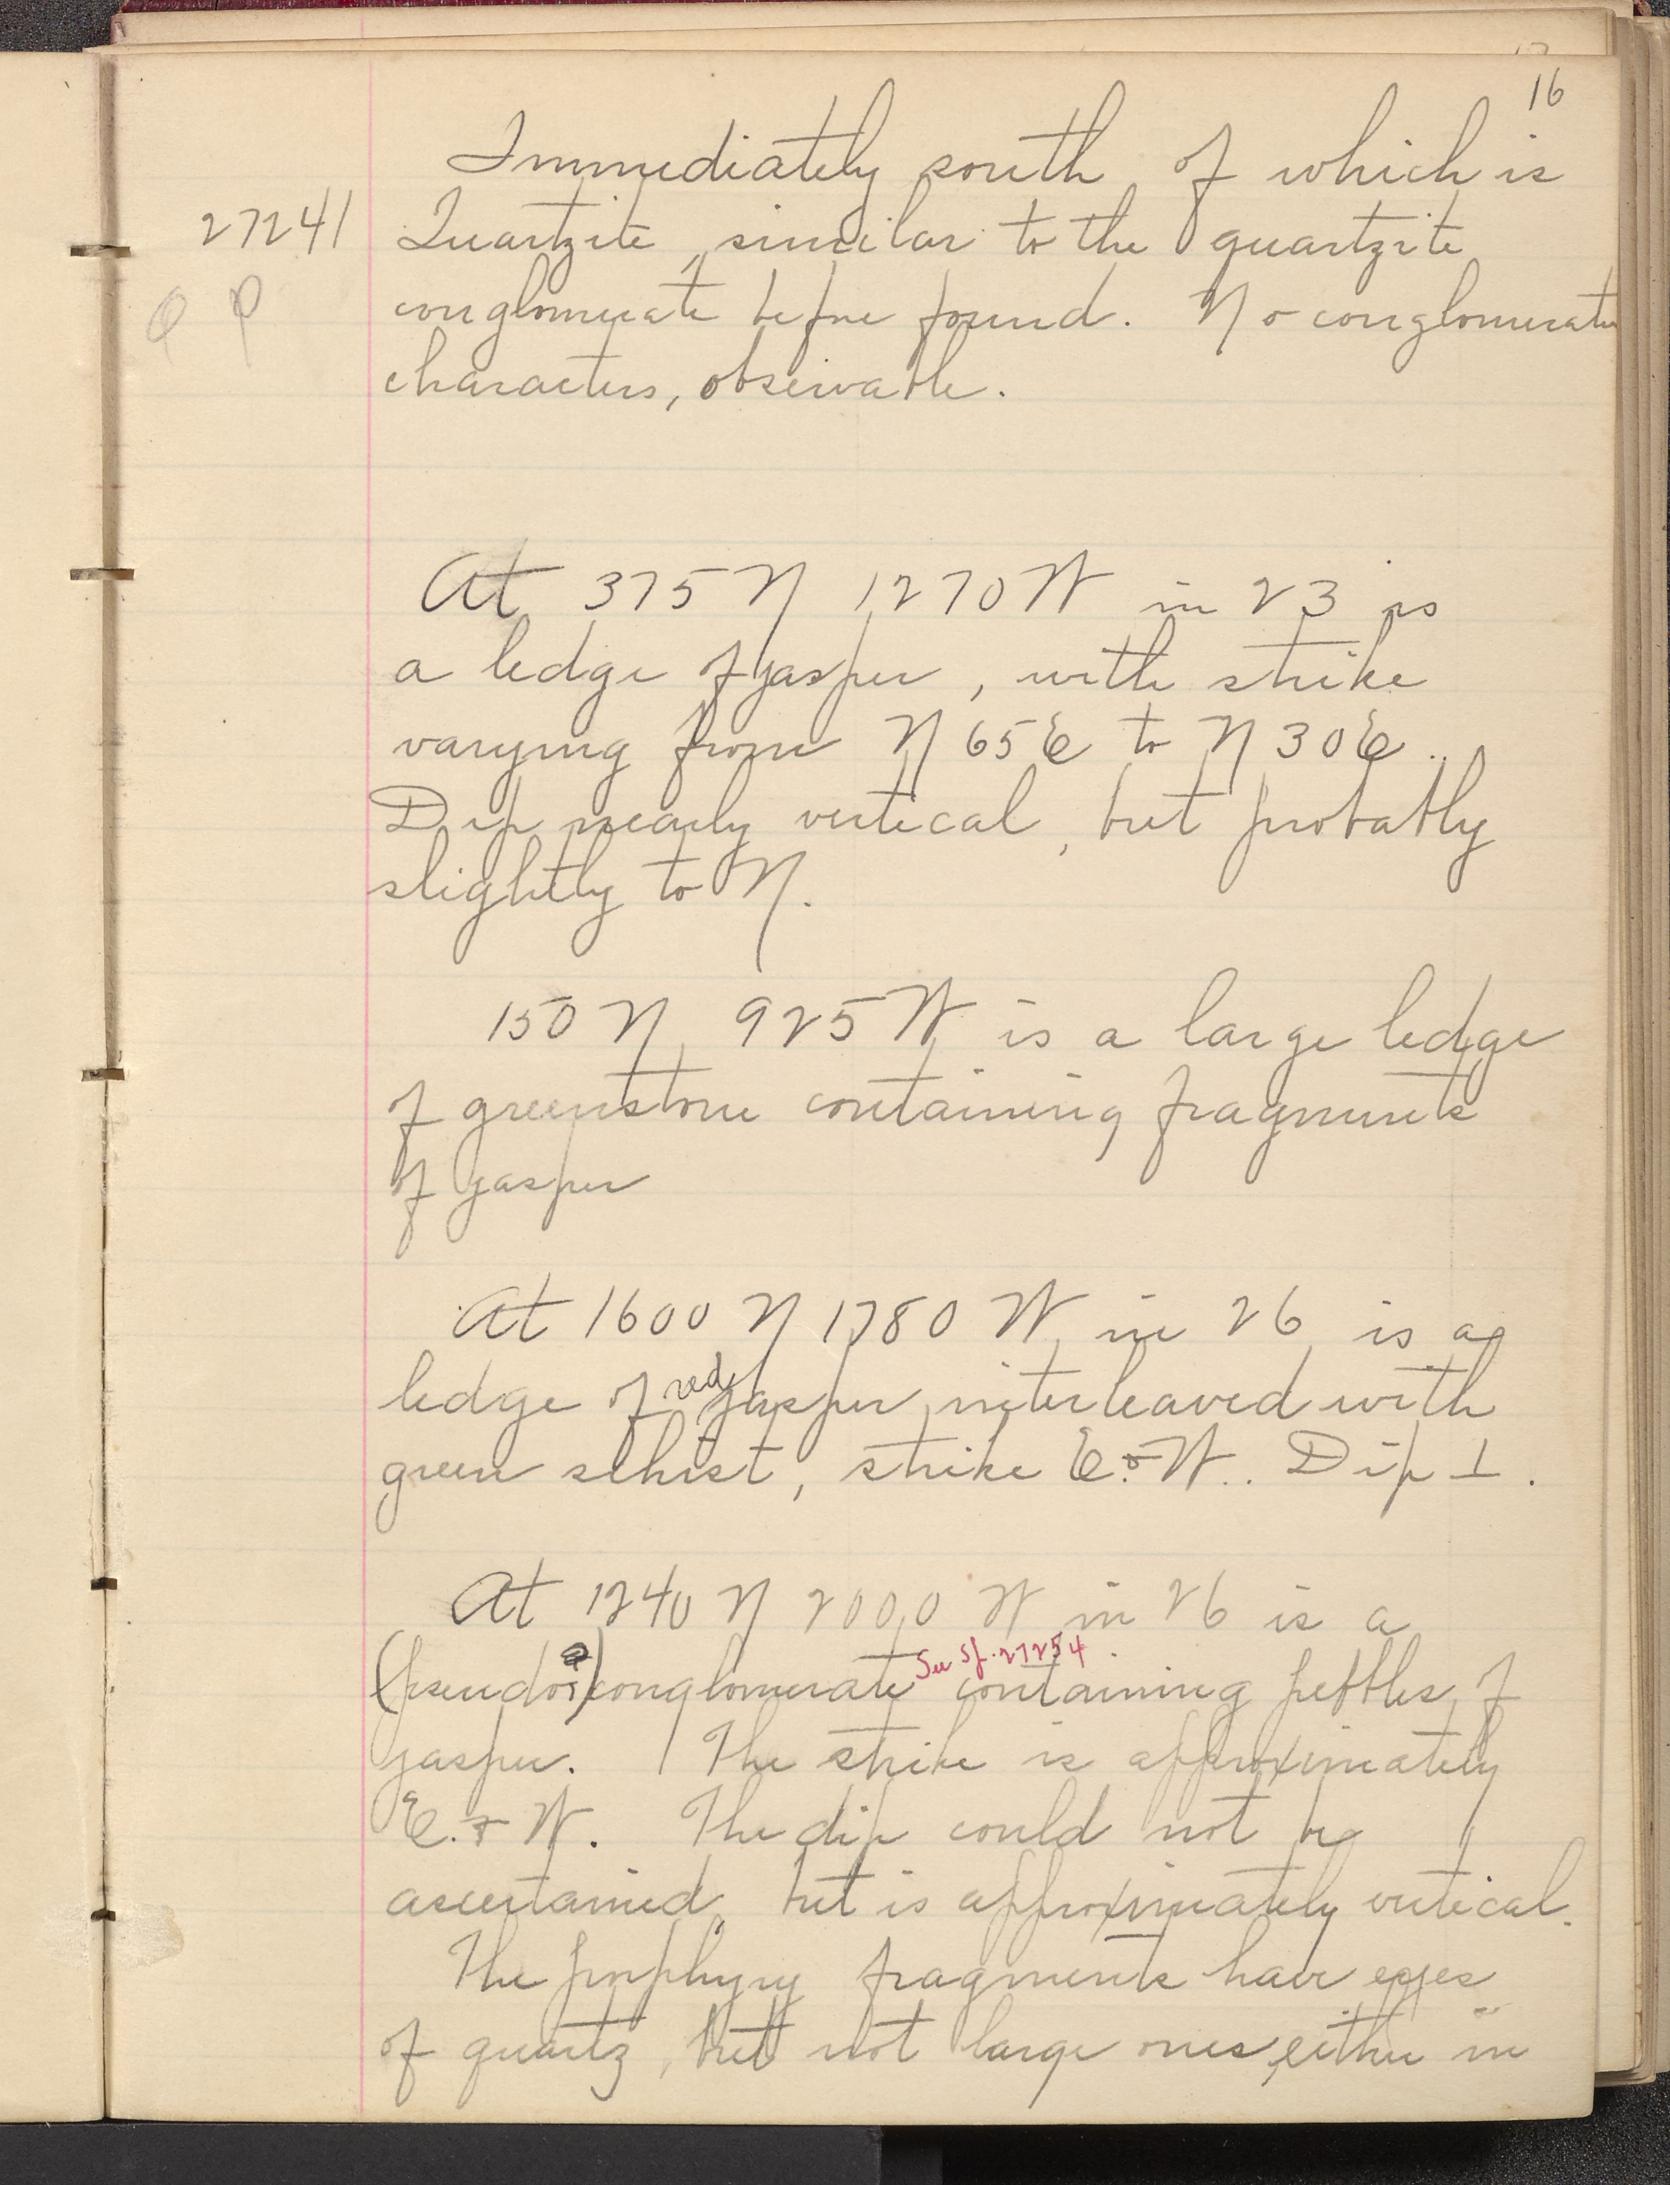 16
Immediately south of which is
27241 Quartzite, similar to the quartzite
conglomerate before found. No conglomerate
characters, observable.
At 375 N 1270 W in 23 is
a ledge of jasper, with strike
varying from N 65 E to N 30 E.
Dip nearly vertical, but probably
slightly to N.
150 N 925 W is a large ledge
of greenstone containing fragments
of jasper
At 1600 N 1780 W in 26 is a
ledge of red jasper interleaved with
green schist, strike E. & W. Dip ⊥.
At 1240 N 2000 W in 26 is a
See Sp. 27254
(pseudo?) conglomerate containing pebbles of
jasper. The strike is approximately
E. & W. The dip could not be
ascertained, but is approximately vertical.
The porphyry fragments have eyes
of quartz, but not large ones, either in